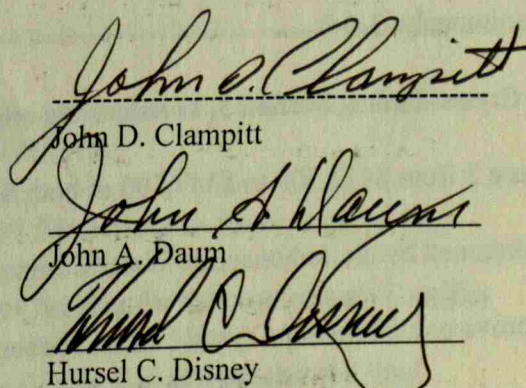 John D. Clampitt
John D. Clampitt
John A Daum
John A. Daum
Hursel C. Disney
Hursel C. Disney